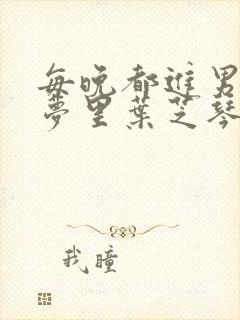 每晚都进男
夢里葉芝琴
我瞳